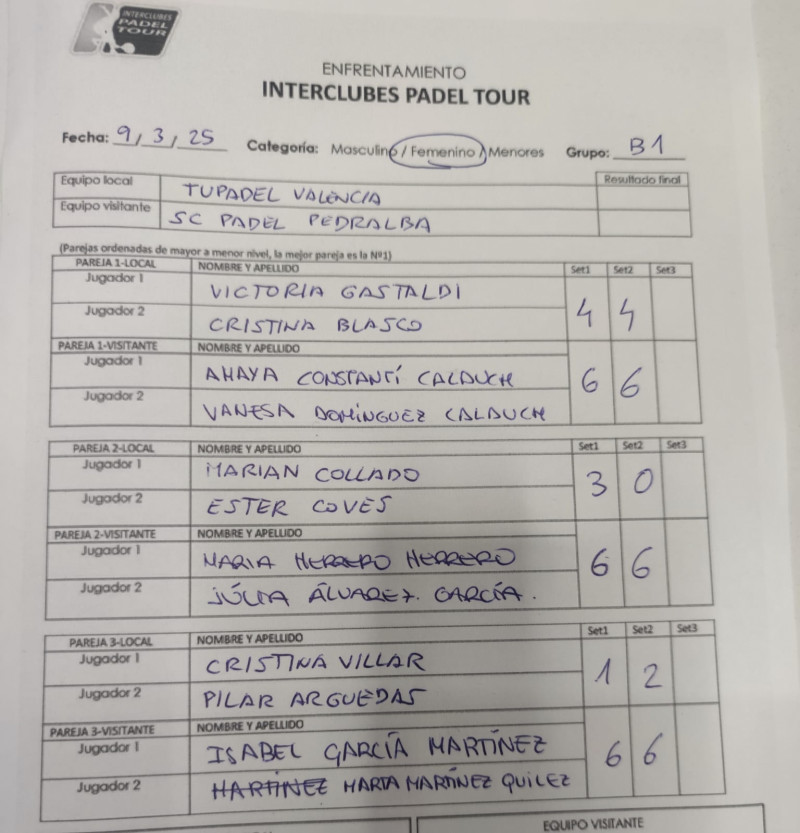 INTERCLUBES
PADEL
TOUR
ENFRENTAMIENTO
INTERCLUBES PADEL TOUR
Fecha: 9/3/25 Categoría: Masculino / Femenino / Menores Grupo: B1
Equipo local TUPADEL VALENCIA Resultado final
Equipo visitante SC PADEL PEDRALBA
(Parejas ordenadas de mayor a menor nivel, la mejor pareja es la Nº1)
PAREJA 1-LOCAL NOMBRE Y APELLIDO Set1 Set2 Set3
Jugador 1 VICTORIA GASTALDI
Jugador 2 CRISTINA BLASCO 4 4
PAREJA 1-VISITANTE NOMBRE Y APELLIDO
Jugador 1 AMAYA CONSTANTÍ CALDUCH 6 6
Jugador 2 VANESA DOMÍNGUEZ CALDUCH
PAREJA 2-LOCAL NOMBRE Y APELLIDO Set1 Set2 Set3
Jugador 1 MARIAN COLLADO 3 0
Jugador 2 ESTER COVES
PAREJA 2-VISITANTE NOMBRE Y APELLIDO
Jugador 1 MARIA HERRERO HERRERO 6 6
Jugador 2 JÚLIA ÁLVAREZ GARCÍA.
PAREJA 3-LOCAL NOMBRE Y APELLIDO Set1 Set2 Set3
Jugador 1 CRISTINA VILLAR 1 2
Jugador 2 PILAR ARGUEDAS
PAREJA 3-VISITANTE NOMBRE Y APELLIDO
Jugador 1 ISABEL GARCÍA MARTÍNEZ 6 6
Jugador 2 MARTÍNEZ MARTA MARTÍNEZ QUILEZ
EQUIPO VISITANTE